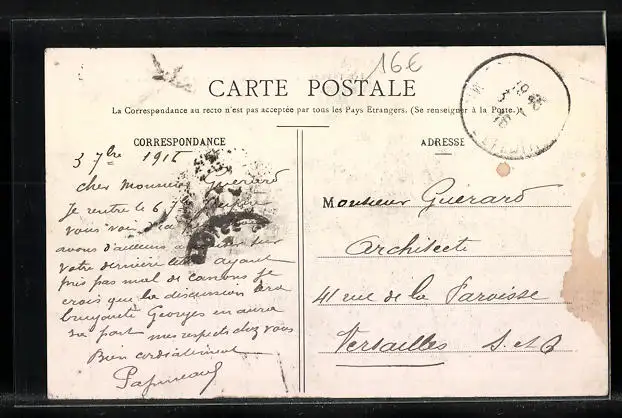 16€
CARTE POSTALE
La Correspondance au recto n'est pas acceptée par tous les Pays Etrangers. (Se renseigner à la Poste.)
CORRESPONDANCE
3 7bre 1916
Cher Monsieur Guérard
Je rentre le 6
vous voir
avons d'ailleurs
votre dernière ayant
pris pas mal de canons je
crois que la discussion sera
bruyante Georges en aura
sa part mes respects chez vous
Bien cordialement
ADRESSE
Monsieur Guérard
Architecte
41 rue de la Paroisse
Versailles S. et O